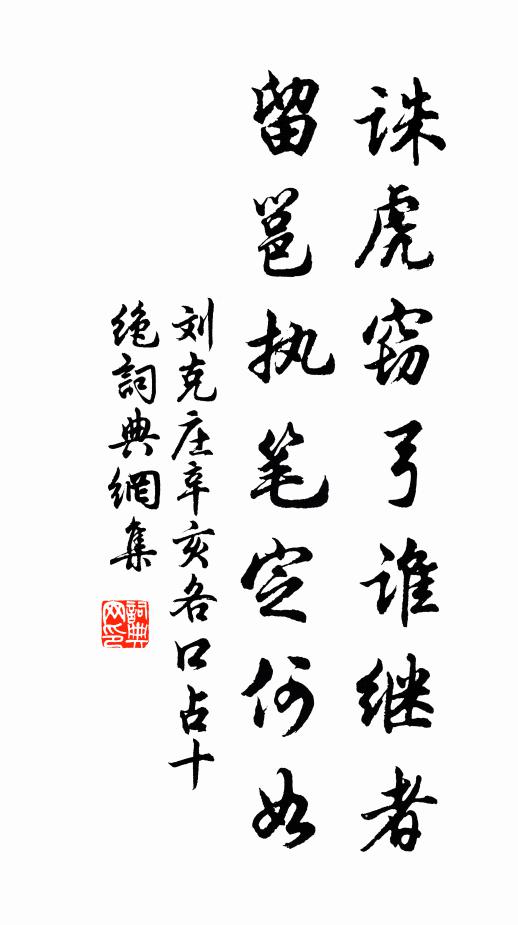 诛虎窃弓谁继者
留邕执笔定何如
刘克庄辛亥各口占十
绝詞典網集
詞典网印